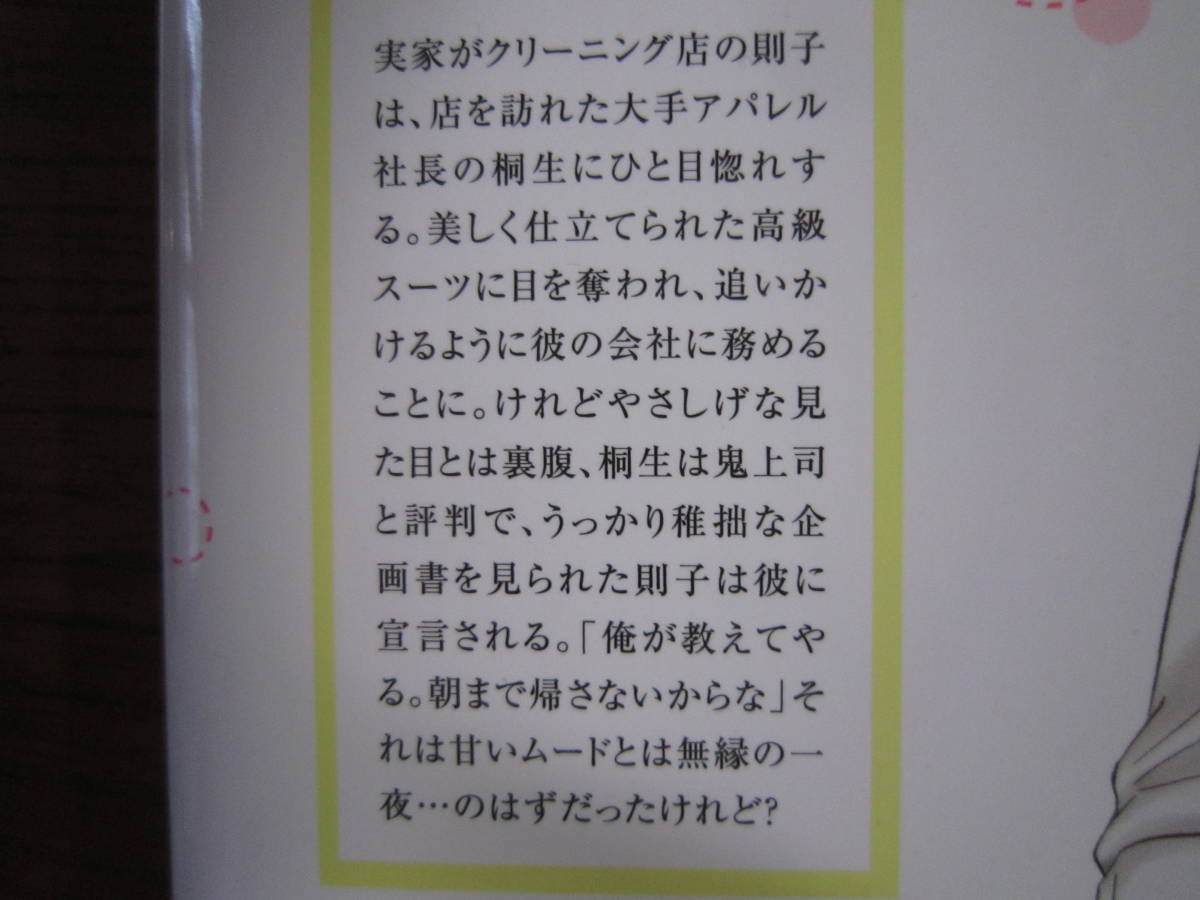 実家がクリーニング店の則子
は、店を訪れた大手アパレル
社長の桐生にひと目惚れす
る。美しく仕立てられた高級
スーツに目を奪われ、追いか
けるように彼の会社に務める
ことに。けれどやさしげな見
た目とは裏腹、桐生は鬼上司
と評判で、うっかり稚拙な企
画書を見られた則子は彼に
宣言される。「俺が教えてや
る。朝まで帰さないからな」そ
れは甘いムードとは無縁の一
夜…のはずだったけれど?